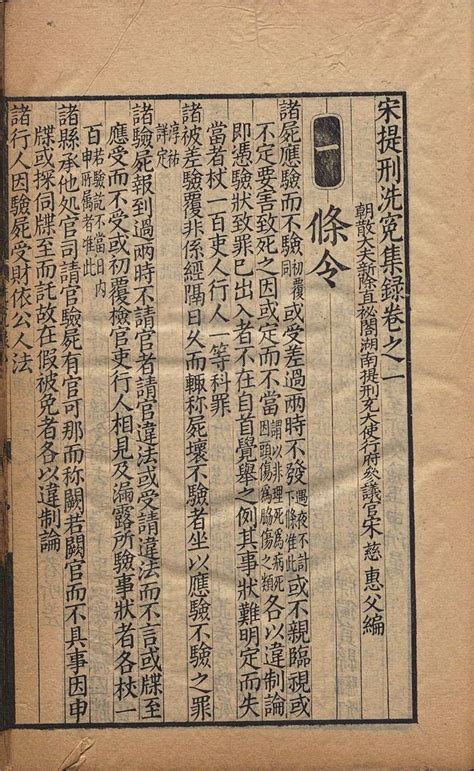 宋提刑洗冤集錄卷之一
朝散大夫新除直秘閣湖南提刑充大使行府參議官宋慈惠父編
一
條令
諸屍應驗而不驗初覆同或受差過兩時不發遇夜不計下條准此或不親臨視或
不定要害致死之因或定而不當謂以非理死爲病死因頭傷爲脇傷之類各以違制論
即憑驗狀致罪已出入者不在自首覺舉之例其事狀難明定而失
當者杖一百吏人行人一等科罪
諸被差驗覆非係經隔日久而輒稱屍壞不驗者坐以應驗不驗之罪
淳祐詳定
諸驗屍報到過兩時不請官者請官違法或受請違法而不言或牒至
應受而不受或初覆檢官吏行人相見及漏露所驗事狀者各杖一
百若驗訖不當日內申所屬者准此
諸縣承他處官司請官驗屍有官可那而稱闕若闕官而不具事因申
牒或探伺牒至而託故在假被免者各以違制論
諸行人因驗屍受財依公人法